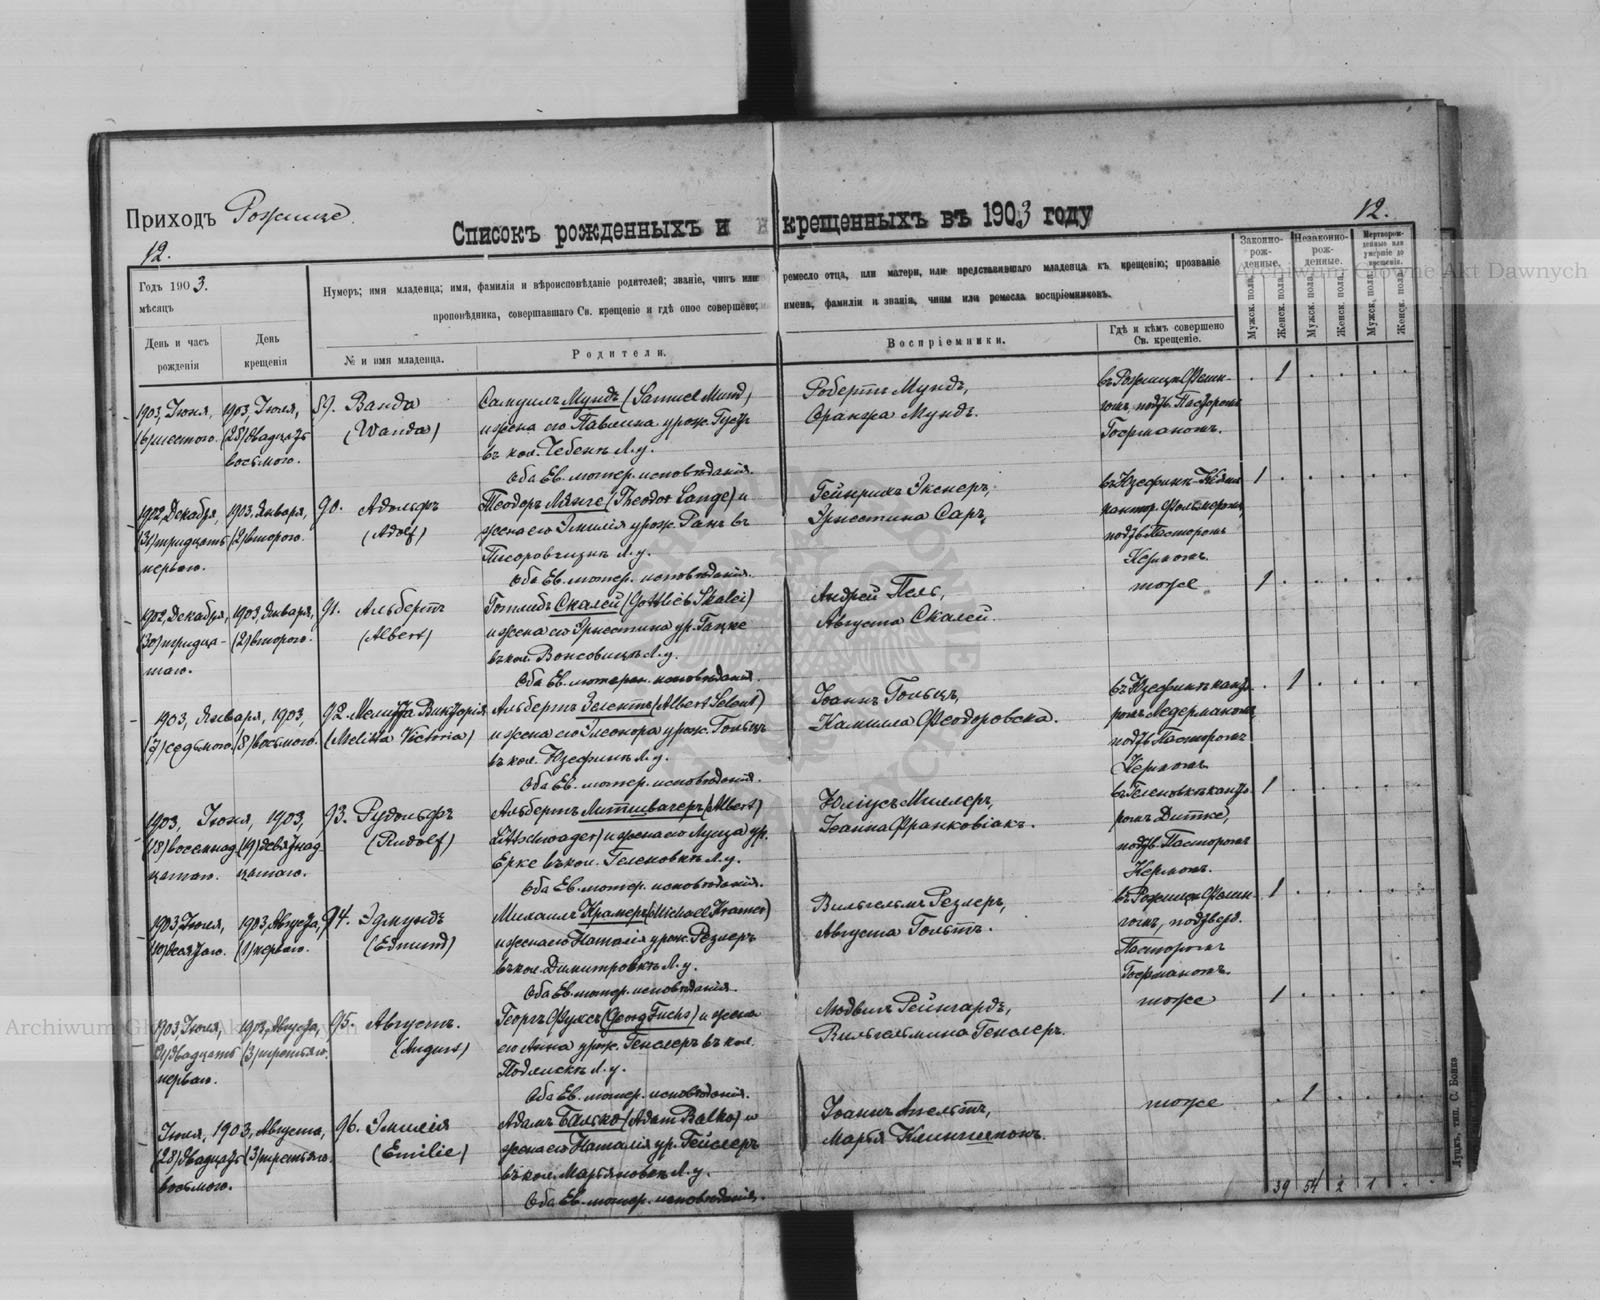 Приходъ Рожище.
Списокъ рожденныхъ и крещенныхъ въ 1903 году
12.
12.
Годъ 1903.
мѣсяцъ
Нумеръ; имя младенца; имя, фамилія и вѣроисповѣданіе родителей; званіе, чинъ или ремесло отца, или матери, или представившаго младенца къ крещенію; прозваніе
проповѣдника, совершавшаго Св. крещеніе и гдѣ оное совершено; имена, фамиліи и званія, чины или ремесла воспріемниковъ.
Законно-рож-денные.
Незаконно-рож-денные.
Мертворож-денные или умершіе до крещенія.
День и часъ рожденія
День крещенія
№ и имя младенца.
Родители.
Воспріемники.
Гдѣ и кѣмъ совершено Св. крещеніе.
Мужск. пола.
Женск. пола.
Мужск. пола.
Женск. пола.
Мужск. пола.
Женск. пола.
1903, Іюня,
(6) шестого.
1903, Іюля,
(28) двадцать
восьмого.
89. Ванда
(Wanda)
Самуилъ Мундъ (Samuel Mund)
и жена его Павлина урож. Густъ
въ кол. Чебени Л. у.
Оба Ев. лютер. исповѣданія.
Робертъ Мундъ,
Мундъ.
въ Рожищѣ
Пасторомъ
1
1902, Декабря,
(31) тридцать
перваго.
1903, Января,
(2) второго.
90. Адольфъ
(Adolf)
Теодоръ Лянге (Theodor Lange) и
жена его Эмилія урож. Ранъ въ
Л. у.
Оба Ев. лютер. исповѣданія.
Гейнрихъ Экснеръ,
Эрнестина Саръ.
въ Юзефинѣ
подтв. Пасторомъ
Керномъ
1
1902, Декабря,
(30) тридца-
таго.
1903, Января,
(2) второго.
91. Альбертъ
(Albert)
Готлибъ Скалей (Gottlieb Skalei)
и жена его Эрнестина ур. Гацке
въ кол. Л. у.
Оба Ев. лютеран. исповѣданія.
Андрей Пель,
Августа Скалей.
тоже
1
1903, Января, 1903,
(7) седьмого. (8) восьмого.
92. Мелитта Викторія
(Melitta Victoria)
Альбертъ Зелентъ (Albert Selent)
и жена его Элеонора урож. Гольцъ
въ кол. Юзефинѣ Л. у.
Оба Ев. лютер. исповѣданія.
Іоаннъ Гольцъ,
Камилла Феодоровска.
въ Юзефинѣ канто-
ромъ Ледерманомъ
подтв. Пасторомъ
Керномъ
1
1903, Іюня, 1903,
(18) восемнад- (19) девятнад-
цатаго. цатаго.
93. Рудольфъ
(Rudolf)
Альбертъ Литтшвагеръ (Albert
Littschwager) и жена его Луиза ур.
Ерке въ кол. Геленовкѣ Л. у.
Оба Ев. лютер. исповѣданія.
Юліусъ Миллеръ,
Іоанна Франковіакъ.
въ Геленовкѣ канто-
ромъ Дитке,
подтв. Пасторомъ
Керномъ.
1
1903, Іюля,
(10) десятаго.
1903, Августа,
(1) перваго.
94. Эдмундъ
(Edmund)
Михаилъ Крамеръ (Michael Kramer)
и жена его Наталія урож. Резлеръ
въ кол. Димитровкѣ Л. у.
Оба Ев. лютер. исповѣданія.
Вильгельмъ Резлеръ,
Августа Гольтъ.
въ Рожищѣ
Пасторомъ
1
1903, Іюля,
(21) двадцать
перваго.
1903, Августа,
(3) третьяго.
95. Августъ.
(August)
Георгъ Фуксъ (Georg Fuchs) и жена
его Анна урож. Генслеръ въ кол.
Л. у.
Оба Ев. лютер. исповѣданія.
Людвигъ Рейнгардъ,
Вильгельмина Генслеръ.
тоже
1
Іюля, 1903, Августа,
(28) двадцать (3) третьяго.
восьмого.
96. Эмилія
(Emilie)
Адамъ Балько (Adam Balko) и
жена его Наталія ур. Гейслеръ
въ кол. Марьяновкѣ Л. у.
Оба Ев. лютер. исповѣданія.
Іоаннъ Апельтъ,
Марья
тоже
1
39 54 2 1
Луцкъ, тип. С. Бонка
Archiwum Główne Akt Dawnych
Archiwum Główne Akt Dawnych